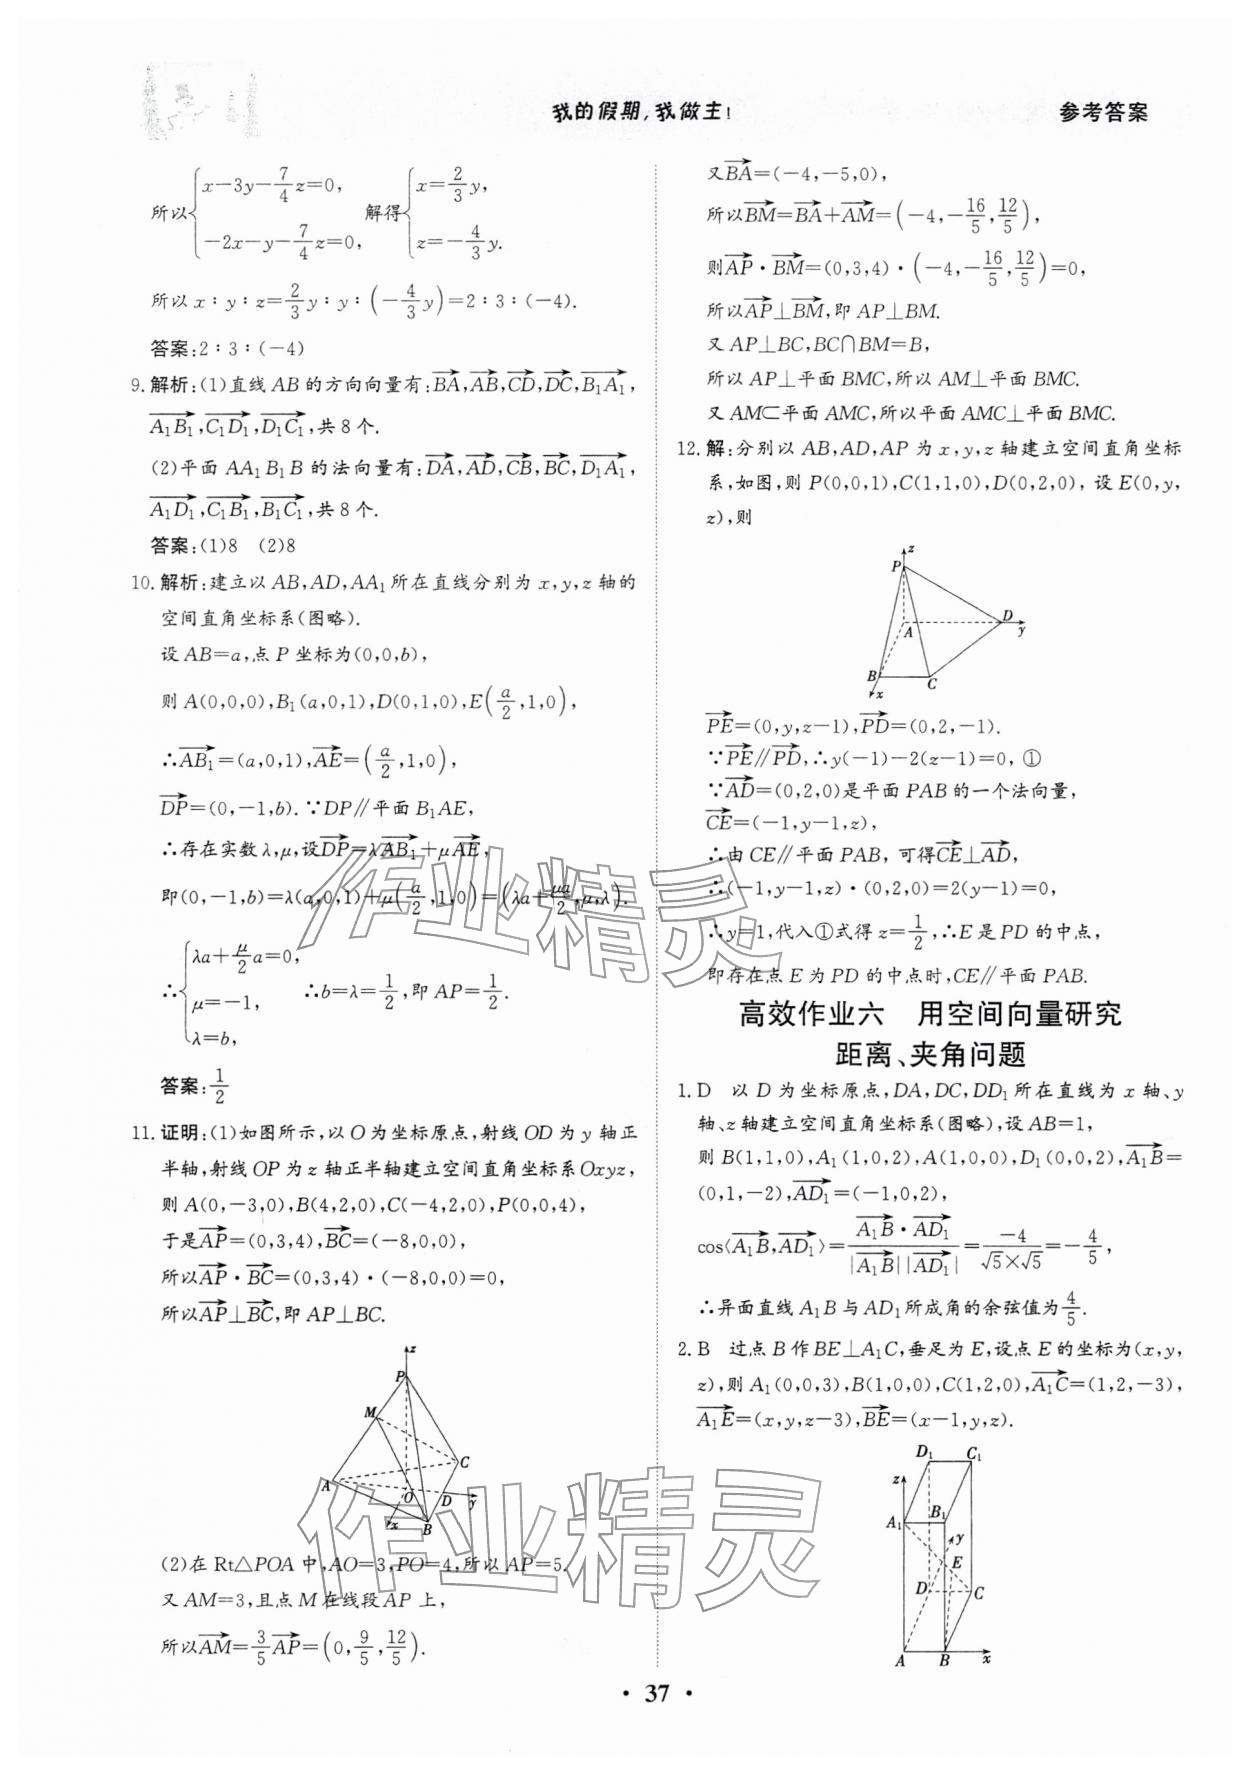 我的假期,我做主!
参考答案
所以{x-3y-7/4z=0, -2x-y-7/4z=0, 解得{x=2/3y, z=-4/3y.
所以x∶y∶z=2/3y∶y∶(-4/3y)=2∶3∶(-4).
答案:2∶3∶(-4)
9.解析:(1)直线AB的方向向量有:BA→,AB→,CD→,DC→,B₁A₁→,
A₁B₁→,C₁D₁→,D₁C₁→,共8个.
(2)平面AA₁B₁B的法向量有:DA→,AD→,CB→,BC→,D₁A₁→,
A₁D₁→,C₁B₁→,B₁C₁→,共8个.
答案:(1)8 (2)8
10.解析:建立以AB,AD,AA₁所在直线分别为x,y,z轴的
空间直角坐标系(图略).
设AB=a,点P坐标为(0,0,b),
则A(0,0,0),B₁(a,0,1),D(0,1,0),E(a/2,1,0),
∴AB₁→=(a,0,1),AE→=(a/2,1,0),
DP→=(0,-1,b).∵DP∥平面B₁AE,
∴存在实数λ,μ,设DP→=λAB₁→+μAE→,
即(0,-1,b)=λ(a,0,1)+μ(a/2,1,0)=(λa+μa/2,μ,λ).
∴{λa+μ/2a=0, μ=-1, λ=b, ∴b=λ=1/2,即AP=1/2.
答案:1/2
11.证明:(1)如图所示,以O为坐标原点,射线OD为y轴正
半轴,射线OP为z轴正半轴建立空间直角坐标系Oxyz,
则A(0,-3,0),B(4,2,0),C(-4,2,0),P(0,0,4),
于是AP→=(0,3,4),BC→=(-8,0,0),
所以AP→·BC→=(0,3,4)·(-8,0,0)=0,
所以AP→⊥BC→,即AP⊥BC.
z
P
M
C
A
O
D
y
x
B
(2)在Rt△POA中,AO=3,PO=4,所以AP=5.
又AM=3,且点M在线段AP上,
所以AM→=3/5AP→=(0,9/5,12/5).
又BA→=(-4,-5,0),
所以BM→=BA→+AM→=(-4,-16/5,12/5),
则AP→·BM→=(0,3,4)·(-4,-16/5,12/5)=0,
所以AP→⊥BM→,即AP⊥BM.
又AP⊥BC,BC∩BM=B,
所以AP⊥平面BMC,所以AM⊥平面BMC.
又AM⊂平面AMC,所以平面AMC⊥平面BMC.
12.解:分别以AB,AD,AP为x,y,z轴建立空间直角坐标
系,如图,则P(0,0,1),C(1,1,0),D(0,2,0),设E(0,y,
z),则
z
P
D
A
y
B
C
x
PE→=(0,y,z-1),PD→=(0,2,-1).
∵PE→∥PD→,∴y(-1)-2(z-1)=0,①
∵AD→=(0,2,0)是平面PAB的一个法向量,
CE→=(-1,y-1,z),
∴由CE∥平面PAB,可得CE→⊥AD→,
∴(-1,y-1,z)·(0,2,0)=2(y-1)=0,
∴y=1,代入①式得z=1/2,∴E是PD的中点,
即存在点E为PD的中点时,CE∥平面PAB.
高效作业六 用空间向量研究
距离、夹角问题
1.D 以D为坐标原点,DA,DC,DD₁所在直线为x轴、y
轴、z轴建立空间直角坐标系(图略),设AB=1,
则B(1,1,0),A₁(1,0,2),A(1,0,0),D₁(0,0,2),A₁B→=
(0,1,-2),AD₁→=(-1,0,2),
cos⟨A₁B→,AD₁→⟩=A₁B→·AD₁→/|A₁B→||AD₁→|=-4/√5×√5=-4/5,
∴异面直线A₁B与AD₁所成角的余弦值为4/5.
2.B 过点B作BE⊥A₁C,垂足为E,设点E的坐标为(x,y,
z),则A₁(0,0,3),B(1,0,0),C(1,2,0),A₁C→=(1,2,-3),
A₁E→=(x,y,z-3),BE→=(x-1,y,z).
D₁
C₁
z
A₁
B₁
y
E
D
C
A
B
x
作业精灵
作业精灵
·37·